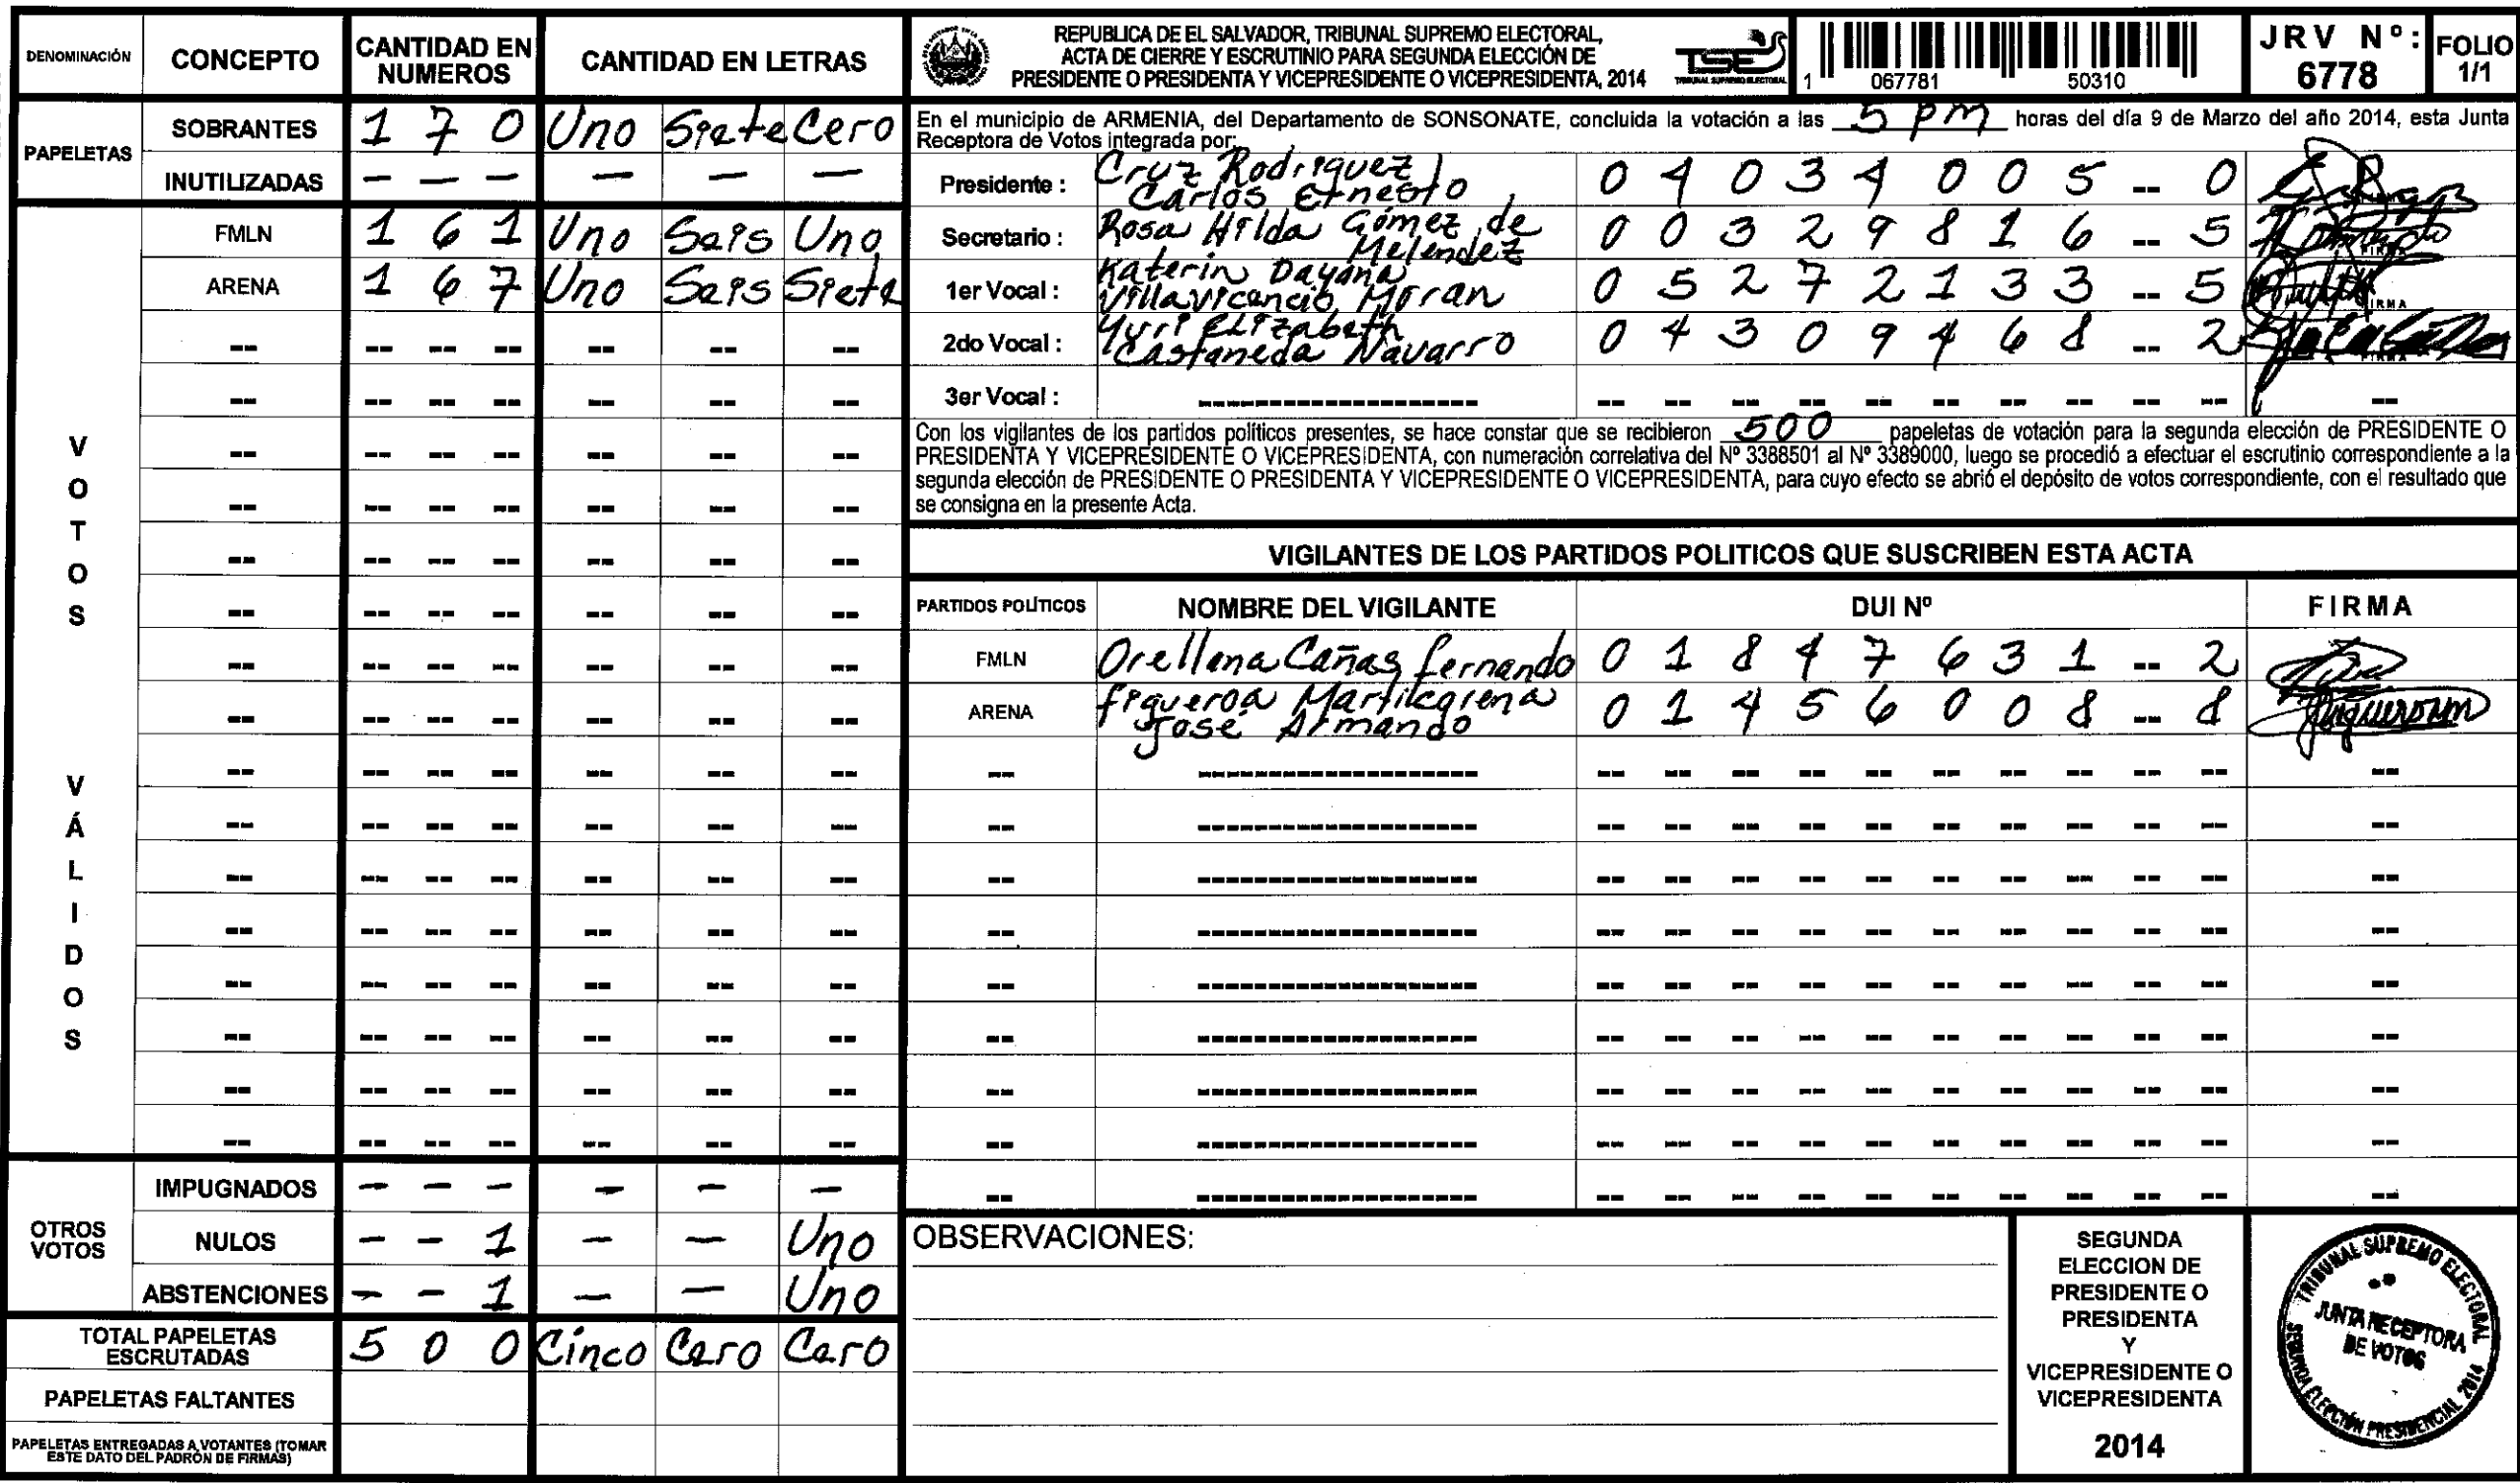 DENOMINACIÓN CONCEPTO CANTIDAD EN NUMEROS CANTIDAD EN LETRAS
PAPELETAS
SOBRANTES 1 7 0 Uno Siete Cero
INUTILIZADAS — — — — — —
VOTOS VÁLIDOS
FMLN 1 6 1 Uno Seis Uno
ARENA 1 6 7 Uno Seis Siete
OTROS VOTOS
IMPUGNADOS — — — — — —
NULOS — — 1 — — Uno
ABSTENCIONES — — 1 — — Uno
TOTAL PAPELETAS ESCRUTADAS 5 0 0 Cinco Cero Cero
PAPELETAS FALTANTES
PAPELETAS ENTREGADAS A VOTANTES (TOMAR
ESTE DATO DEL PADRÓN DE FIRMAS)
REPUBLICA DE EL SALVADOR, TRIBUNAL SUPREMO ELECTORAL,
ACTA DE CIERRE Y ESCRUTINIO PARA SEGUNDA ELECCIÓN DE
PRESIDENTE O PRESIDENTA Y VICEPRESIDENTE O VICEPRESIDENTA, 2014
TSE
TRIBUNAL SUPREMO ELECTORAL
1 067781 50310
JRV Nº: 6778
FOLIO 1/1
En el municipio de ARMENIA, del Departamento de SONSONATE, concluida la votación a las 5 pm horas del día 9 de Marzo del año 2014, esta Junta
Receptora de Votos integrada por:
Presidente : Cruz Rodriguez Carlos Ernesto 0 4 0 3 4 0 0 5 -- 0
Secretario : Rosa Hilda Gómez de Melendez 0 0 3 2 9 8 1 6 -- 5
1er Vocal : Katerin Dayana Villavicencio Moran 0 5 2 7 2 1 3 3 -- 5
2do Vocal : Yuri Elizabeth Castaneda Navarro 0 4 3 0 9 4 6 8 -- 2
3er Vocal :
Con los vigilantes de los partidos políticos presentes, se hace constar que se recibieron 500 papeletas de votación para la segunda elección de PRESIDENTE O
PRESIDENTA Y VICEPRESIDENTE O VICEPRESIDENTA, con numeración correlativa del Nº 3388501 al Nº 3389000, luego se procedió a efectuar el escrutinio correspondiente a la
segunda elección de PRESIDENTE O PRESIDENTA Y VICEPRESIDENTE O VICEPRESIDENTA, para cuyo efecto se abrió el depósito de votos correspondiente, con el resultado que
se consigna en la presente Acta.
VIGILANTES DE LOS PARTIDOS POLITICOS QUE SUSCRIBEN ESTA ACTA
PARTIDOS POLÍTICOS NOMBRE DEL VIGILANTE DUI Nº FIRMA
FMLN Orellana Cañas fernando 0 1 8 4 7 6 3 1 -- 2
ARENA figueroa José Armando 0 1 4 5 6 0 0 8 -- 8
OBSERVACIONES:
SEGUNDA
ELECCION DE
PRESIDENTE O
PRESIDENTA
Y
VICEPRESIDENTE O
VICEPRESIDENTA
2014
TRIBUNAL SUPREMO ELECTORAL
JUNTA RECEPTORA
DE VOTOS
SEGUNDA ELECCIÓN PRESIDENCIAL 2014